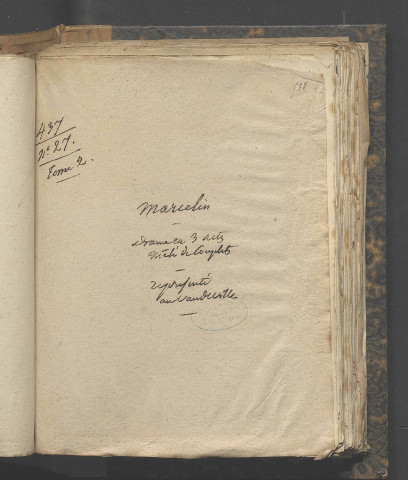 437
nº 27.
Tome 2.
Marcelin
Drame en 3 actes
mêlé de Couplets
représenté
au Vaudeville